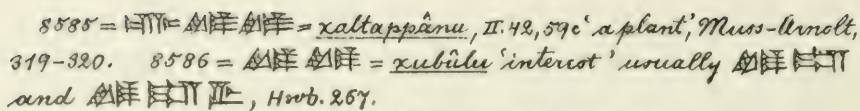 8585 = = xaltappânu, II. 42, 59c 'a plant', Muss-Arnolt,
319-320. 8586 = = xubûlu 'intercot' usually
and , Hwb. 267.